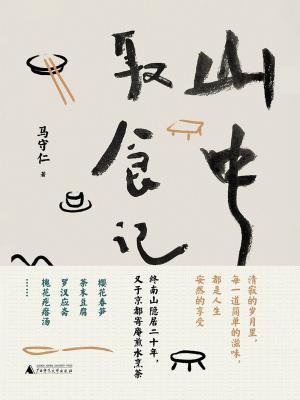 山中
取食记
马守仁
著
清寂的岁月里，
每一道简单的滋味，
都是人生
安然的享受
终南山隐居二十年，
又于京都寄庵煎水烹茶
樱花春笋
茶末豆腐
罗汉应斋
槐花疙瘩汤
……
广西师范大学出版社